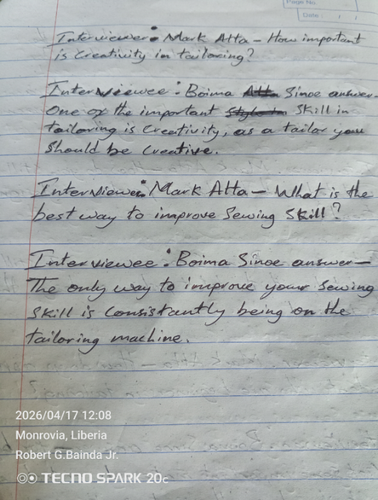 Page No.
Date:
Interviewer: Mark Atta - How important
is Creativity in tailoring?
Interviewee: Boima Sinoe answer-
One of the important Skill in
tailoring is Creativity, as a tailor you
Should be Creative.
Interviewer: Mark Atta - What is the
best way to improve Sewing Skill?
Interviewee: Boima Sinoe answer-
The only way to improve your sewing
Skill is Consistantly being on the
tailoring machine.
2026/04/17 12:08
Monrovia, Liberia
Robert G.Bainda Jr.
TECNO SPARK 20C